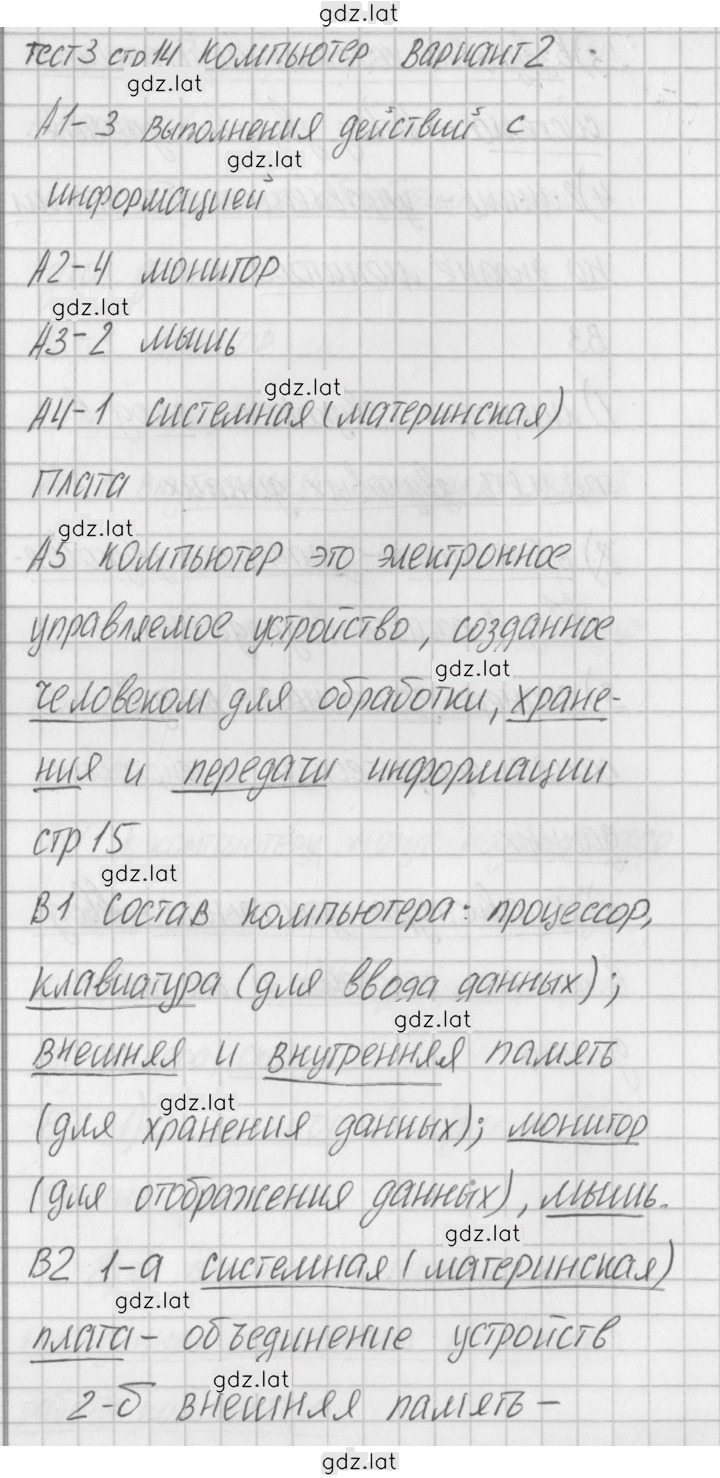 gdz.lat
тест 3 стр 14 компьютер вариант 2
gdz.lat
А1-3 выполнения действий с
gdz.lat
информацией
А2-4 монитор
gdz.lat
А3-2 мышь
gdz.lat
А4-1 системная (материнская)
плата
gdz.lat
А5 компьютер это электронное
управляемое устройство, созданное
gdz.lat
человеком для обработки, хране-
ния и передачи информации
стр 15
gdz.lat
В1 Состав компьютера: процессор,
клавиатура (для ввода данных);
gdz.lat
внешняя и внутренняя память
gdz.lat
(для хранения данных); монитор
(для отображения данных), мышь.
gdz.lat
В2 1-а системная (материнская)
gdz.lat
плата - объединение устройств
gdz.lat
2-б внешняя память -
gdz.lat